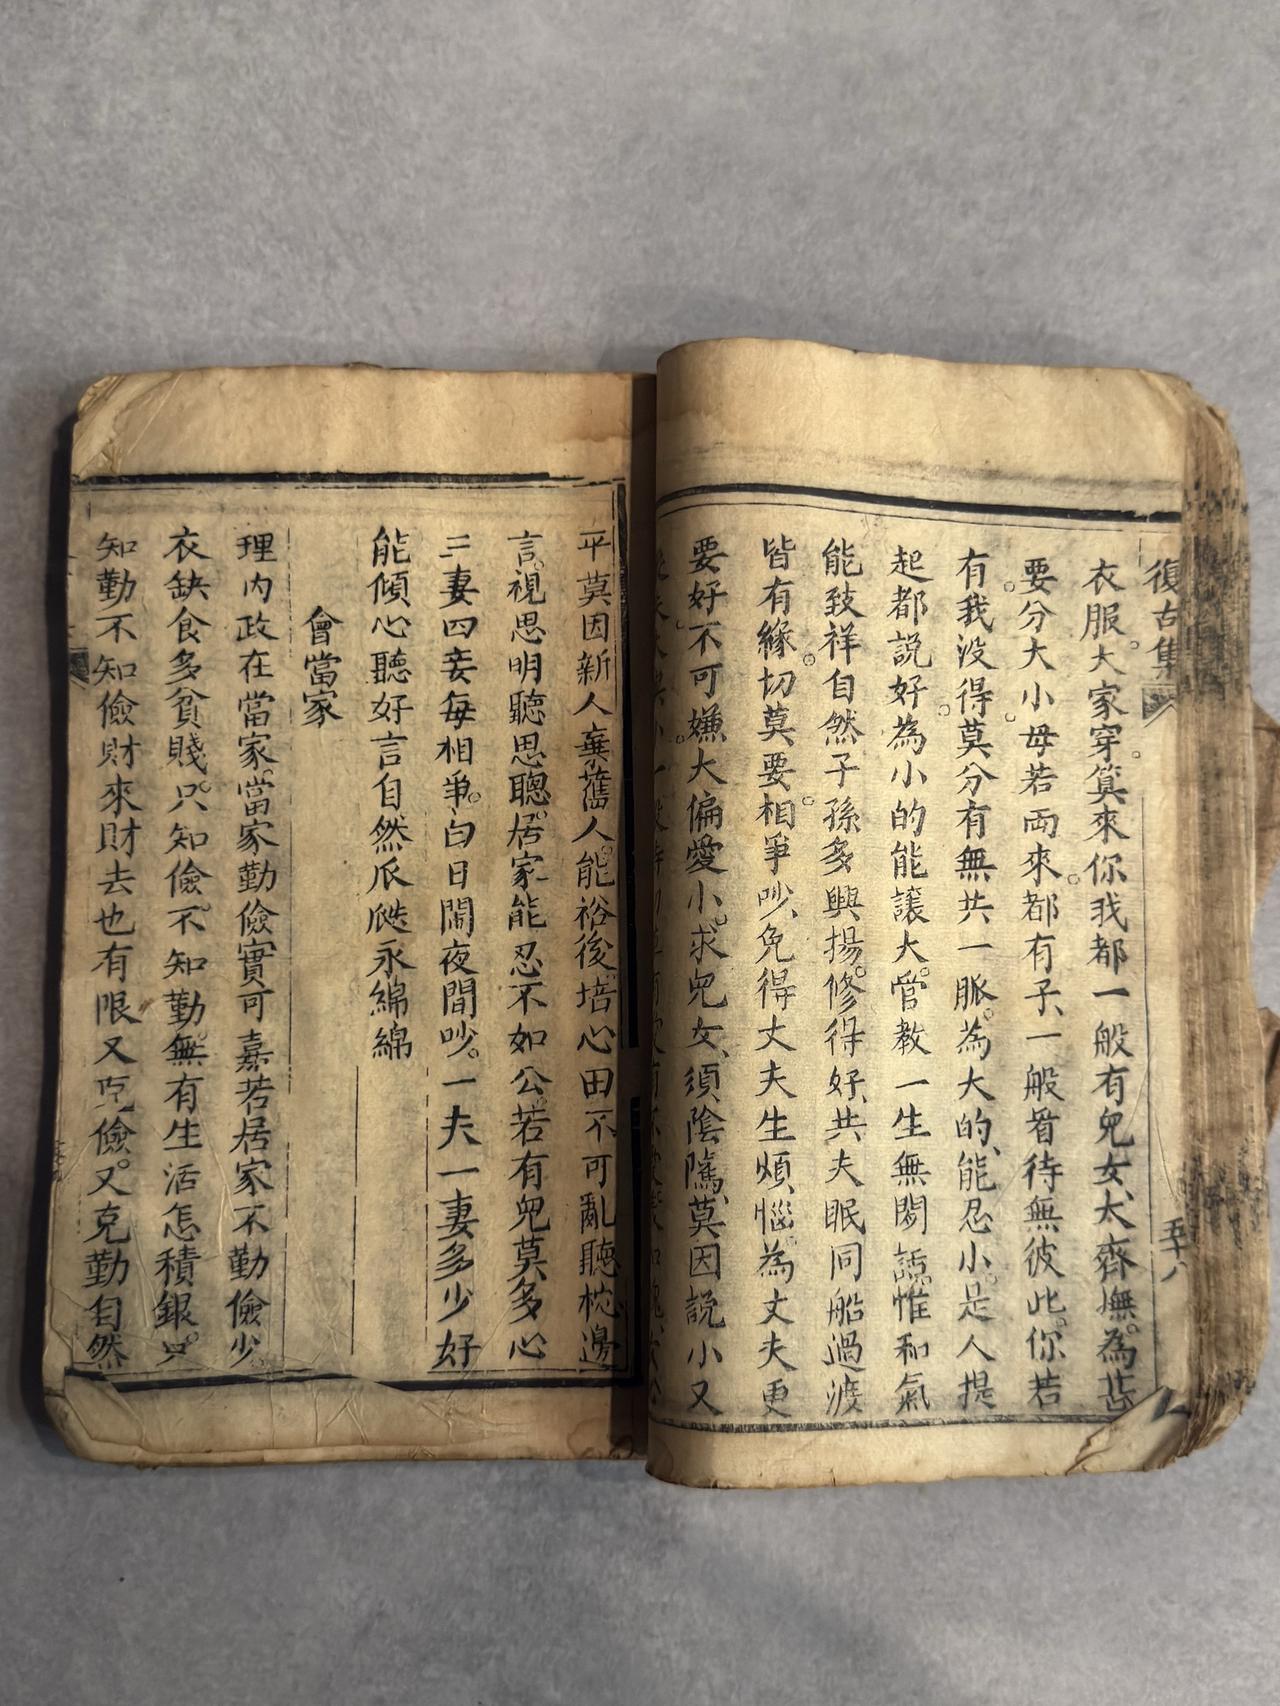 復古集
五十八
衣服大家穿算來你我都一般有兒女大齊撫為甚
要分大小母若両來都有子一般看待無彼此你若
有我没得莫分有無共一脈為大的能忍小是人提
起都説好為小的能讓大管教一生無閙話惟和氣
能致祥自然子孫多興揚修得好共夫眠同船過渡
皆有緣切莫要相爭吵免得丈夫生煩惱為丈夫更
要好不可嫌大偏愛小求兒女須陰隲莫因説小又
平莫因新人棄舊人能裕後培心田不可亂聽枕邊
言視思明聽思聰居家能忍不如公若有兒莫多心
三妻四妾每相爭白日閙夜間吵一夫一妻多少好
能傾心聽好言自然瓜瓞永綿綿
會當家
理内政在當家當家勤儉實可嘉若居家不勤儉少
衣缺食多貧賤只知儉不知勤無有生活怎積銀只
知勤不知儉財來財去也有限又克儉又克勤自然